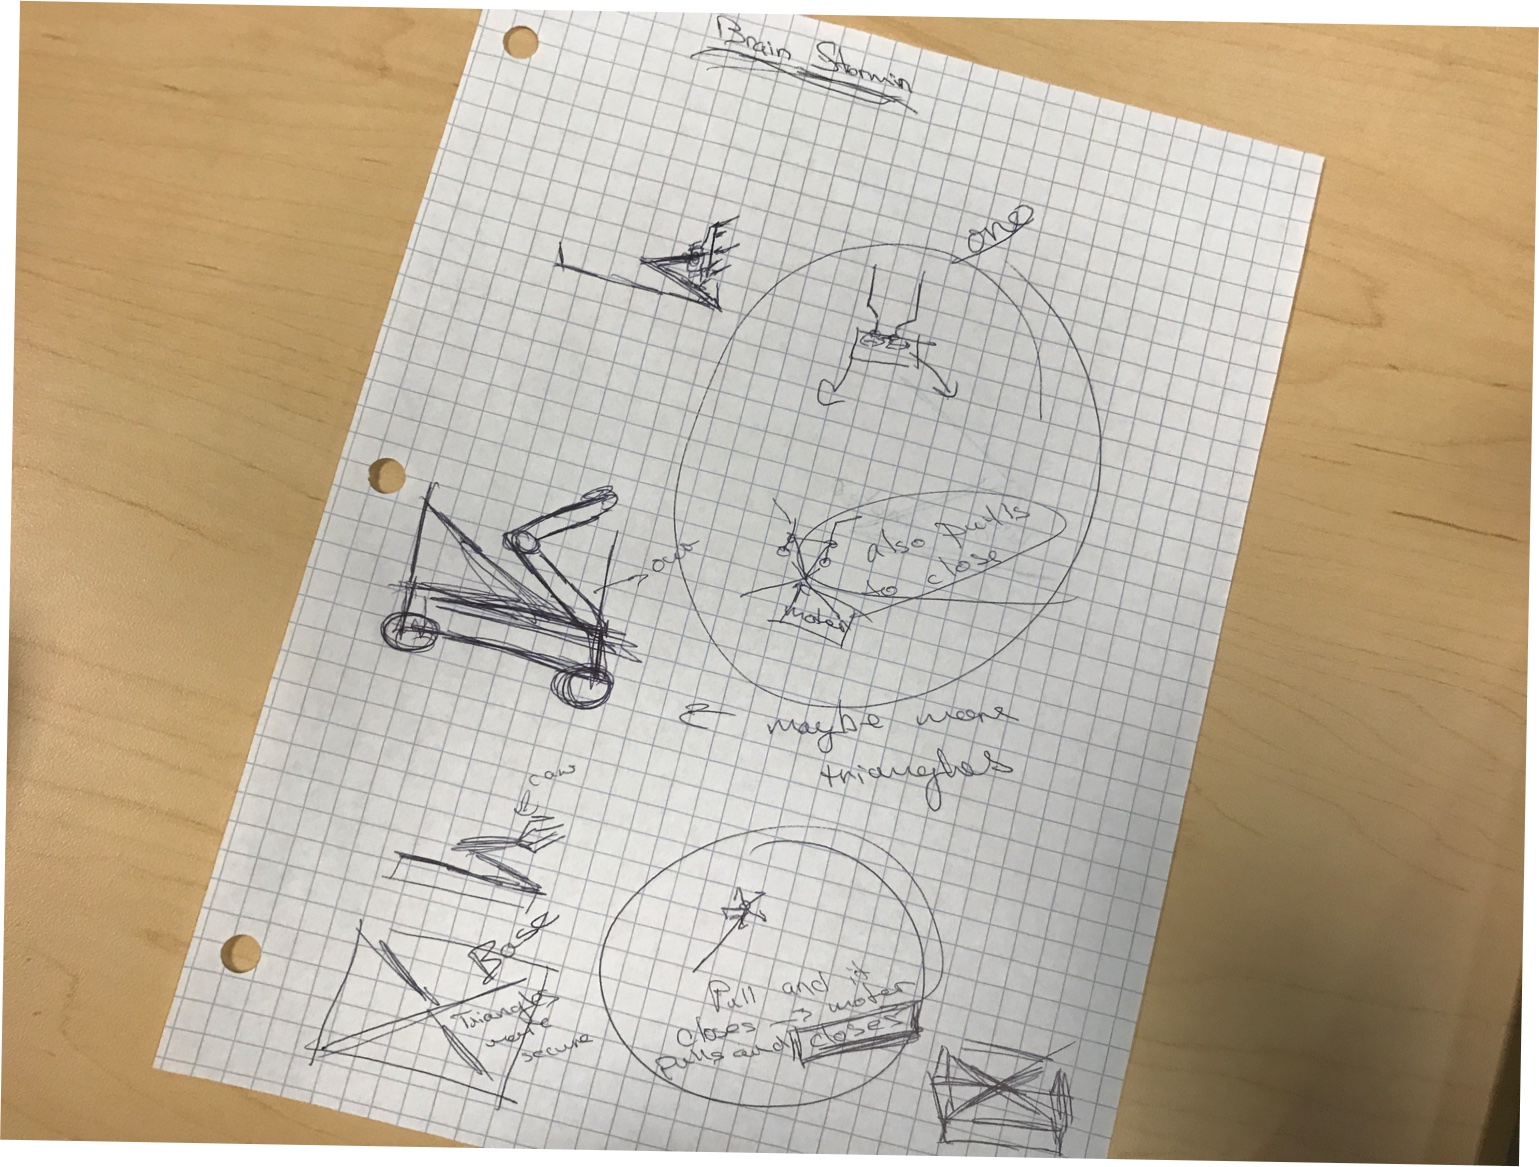 Brain Stormin
one
also pulls
to close
moter
maybe more
trianghels
Base
Triangles
more
secure
Pull and it
closes → moter
pulls and closes